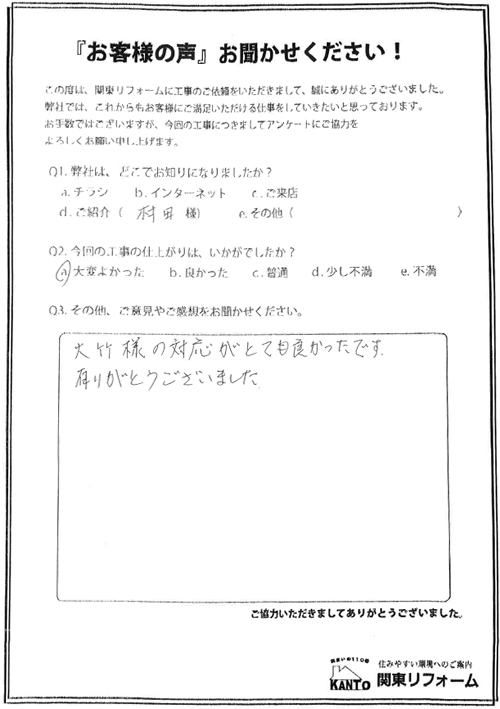 『お客様の声』お聞かせください！
この度は、関東リフォームに工事のご依頼をいただきまして、誠にありがとうございました。
弊社では、これからもお客様にご満足いただける仕事をしていきたいと思っております。
お手数ではございますが、今回の工事につきましてアンケートにご協力を
よろしくお願い申し上げます。
Q1. 弊社は、どこでお知りになりましたか？
a. チラシ　b. インターネット　c. ご来店
d. ご紹介（ 村田 様）　e. その他（　）
Q2. 今回の工事の仕上がりは、いかがでしたか？
a. 大変よかった　b. 良かった　c. 普通　d. 少し不満　e. 不満
Q3. その他、ご意見やご感想をお聞かせください。
大竹様の対応がとても良かったです.
有りがとうございました.
ご協力いただきましてありがとうございました。
住まいの110番
KANTO
住みやすい環境へのご案内
関東リフォーム